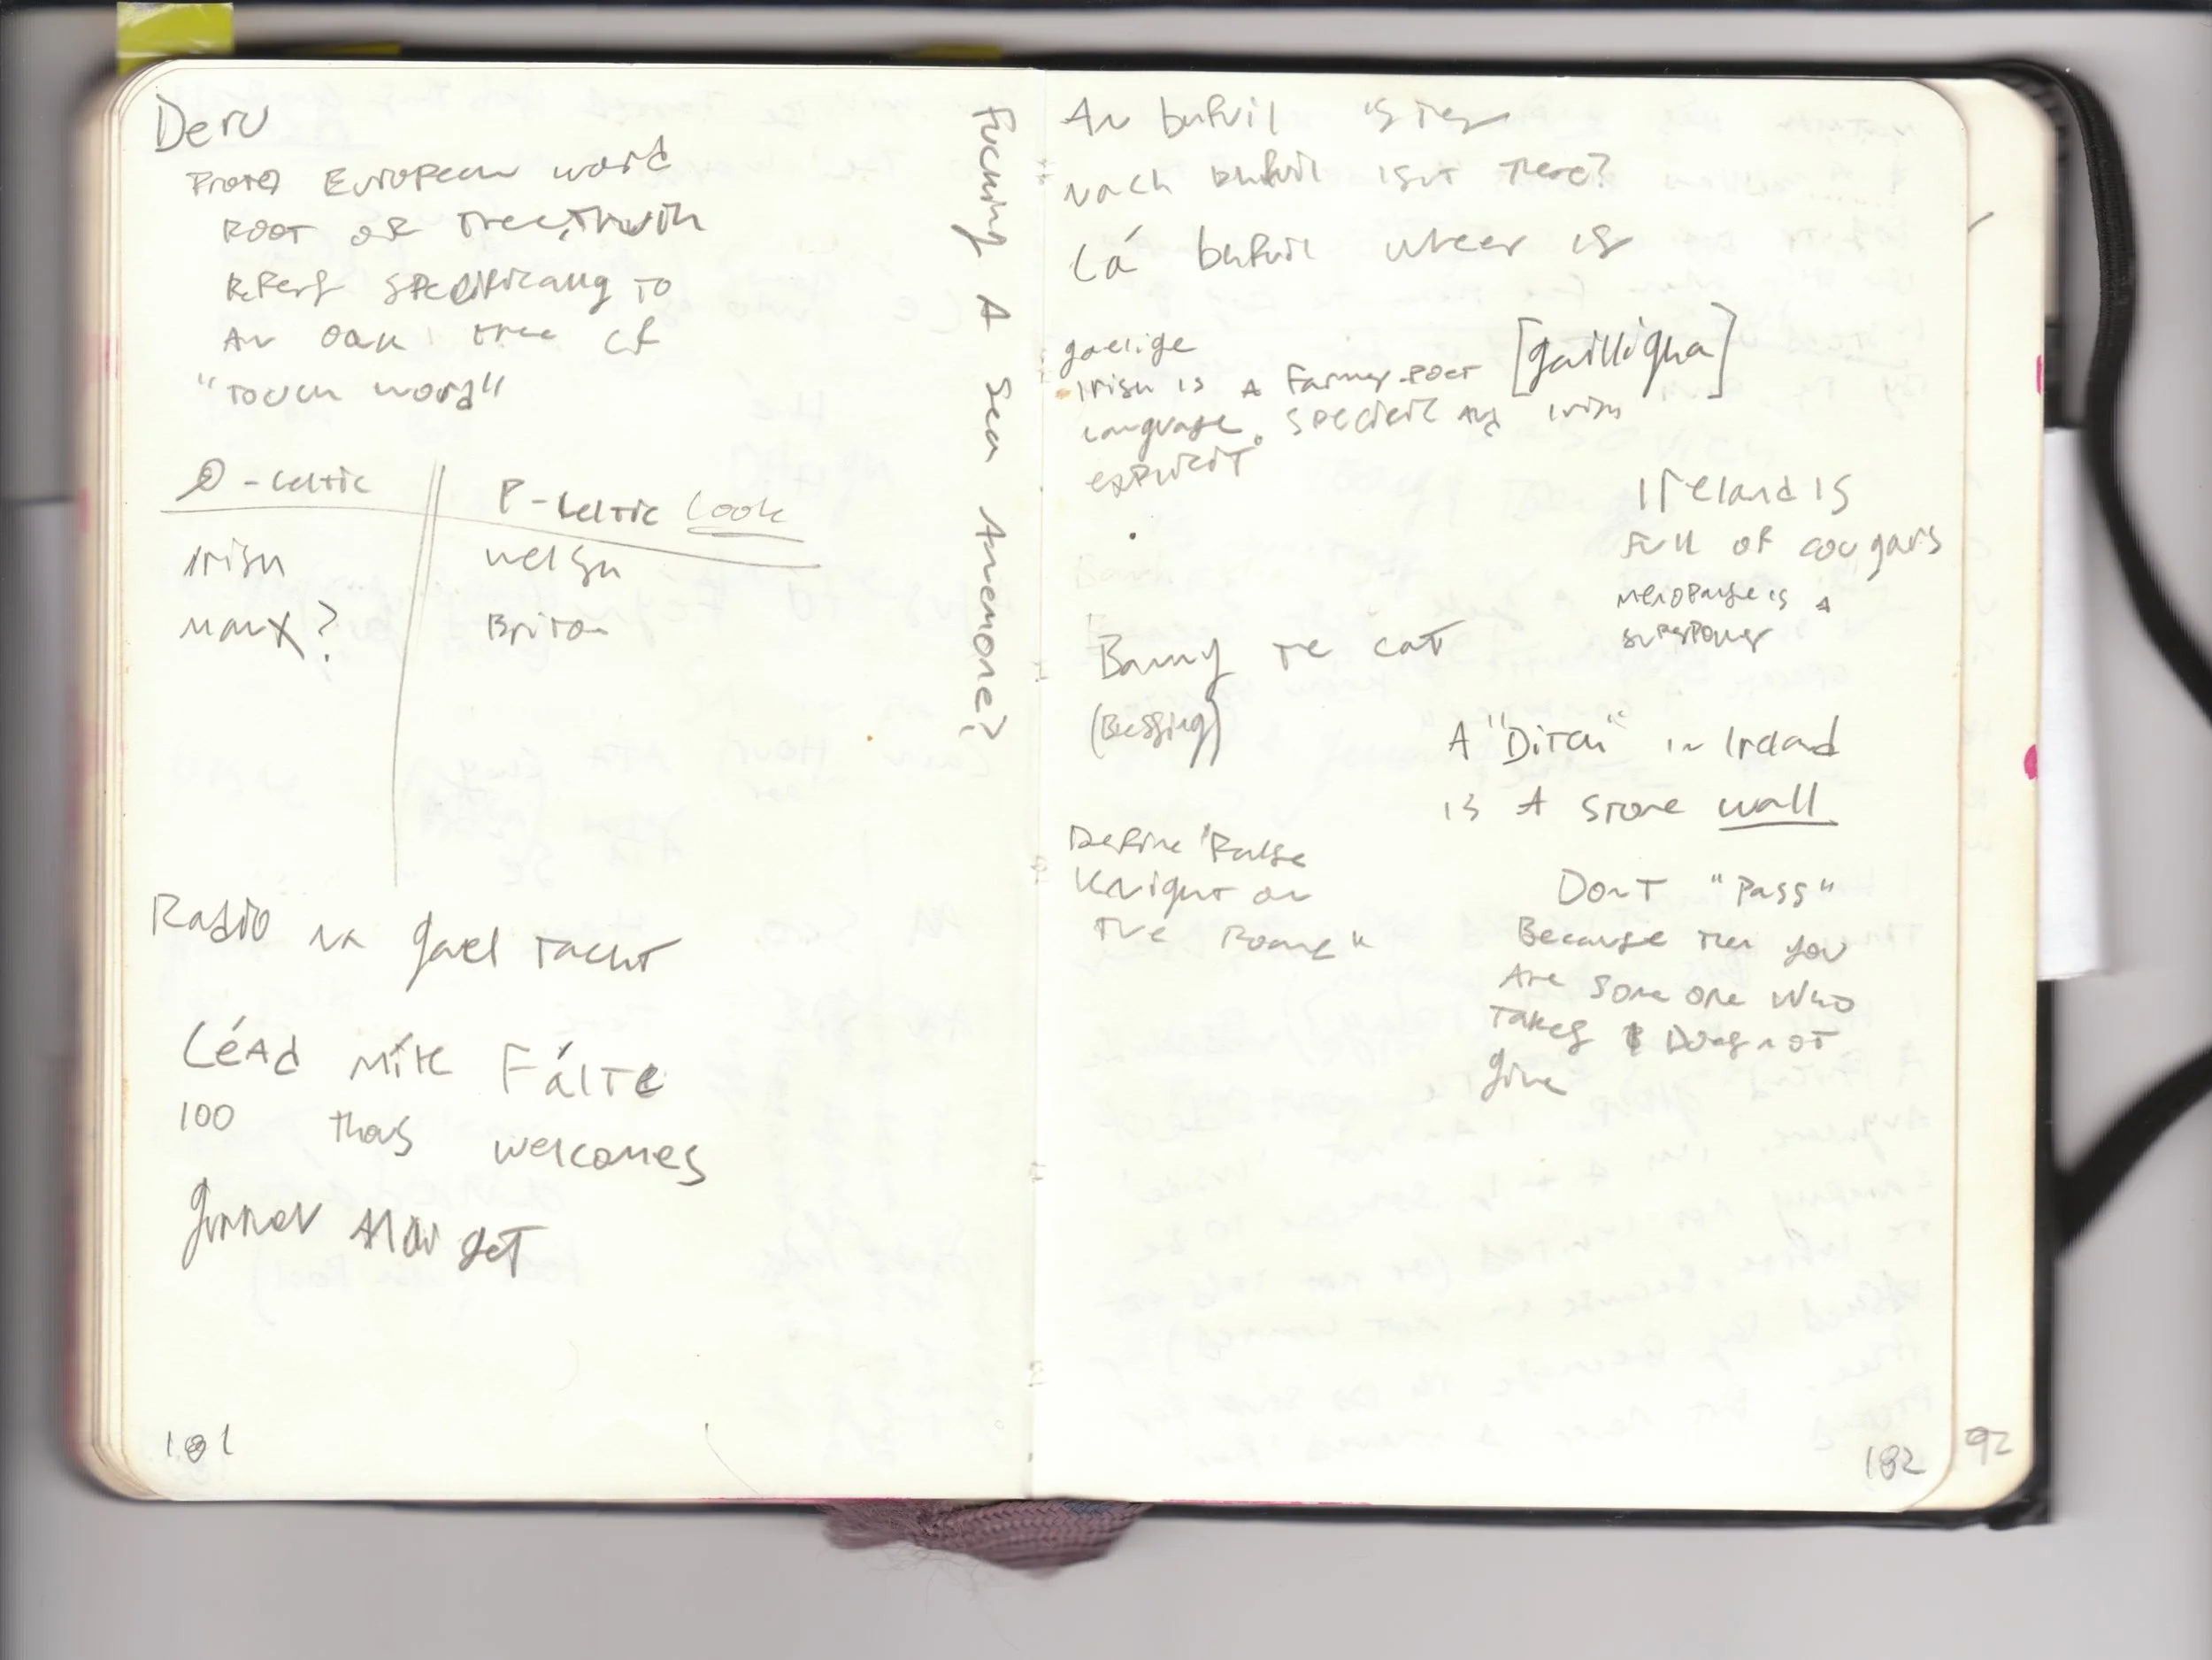 Deru
Proto European word
root of tree, truth
Refers specifically to
An oak tree cf
"Touch word"
Q-Celtic
P-Celtic Look
Irish
Welsh
Manx?
Briton
Radio na gael tacht
Céad míle Fálte
100 thous welcomes
181
Fucking A Sea Anemone?
An bhfuil is
nach bhfuil isnt there?
Cá bhfuil wheer is
gaelige
[gailligha]
Irish is a Farmer-Poet
language. Specific and Irish
explicit
Ireland is
full of cougars
menopause is a
superpower
Banny the cat
A "Ditch" in Ireland
is A stone wall
Define "False
Knight on
the Roane"
Dont "Pass"
Because then you
Are some one who
Takes & Does not
give
182
92